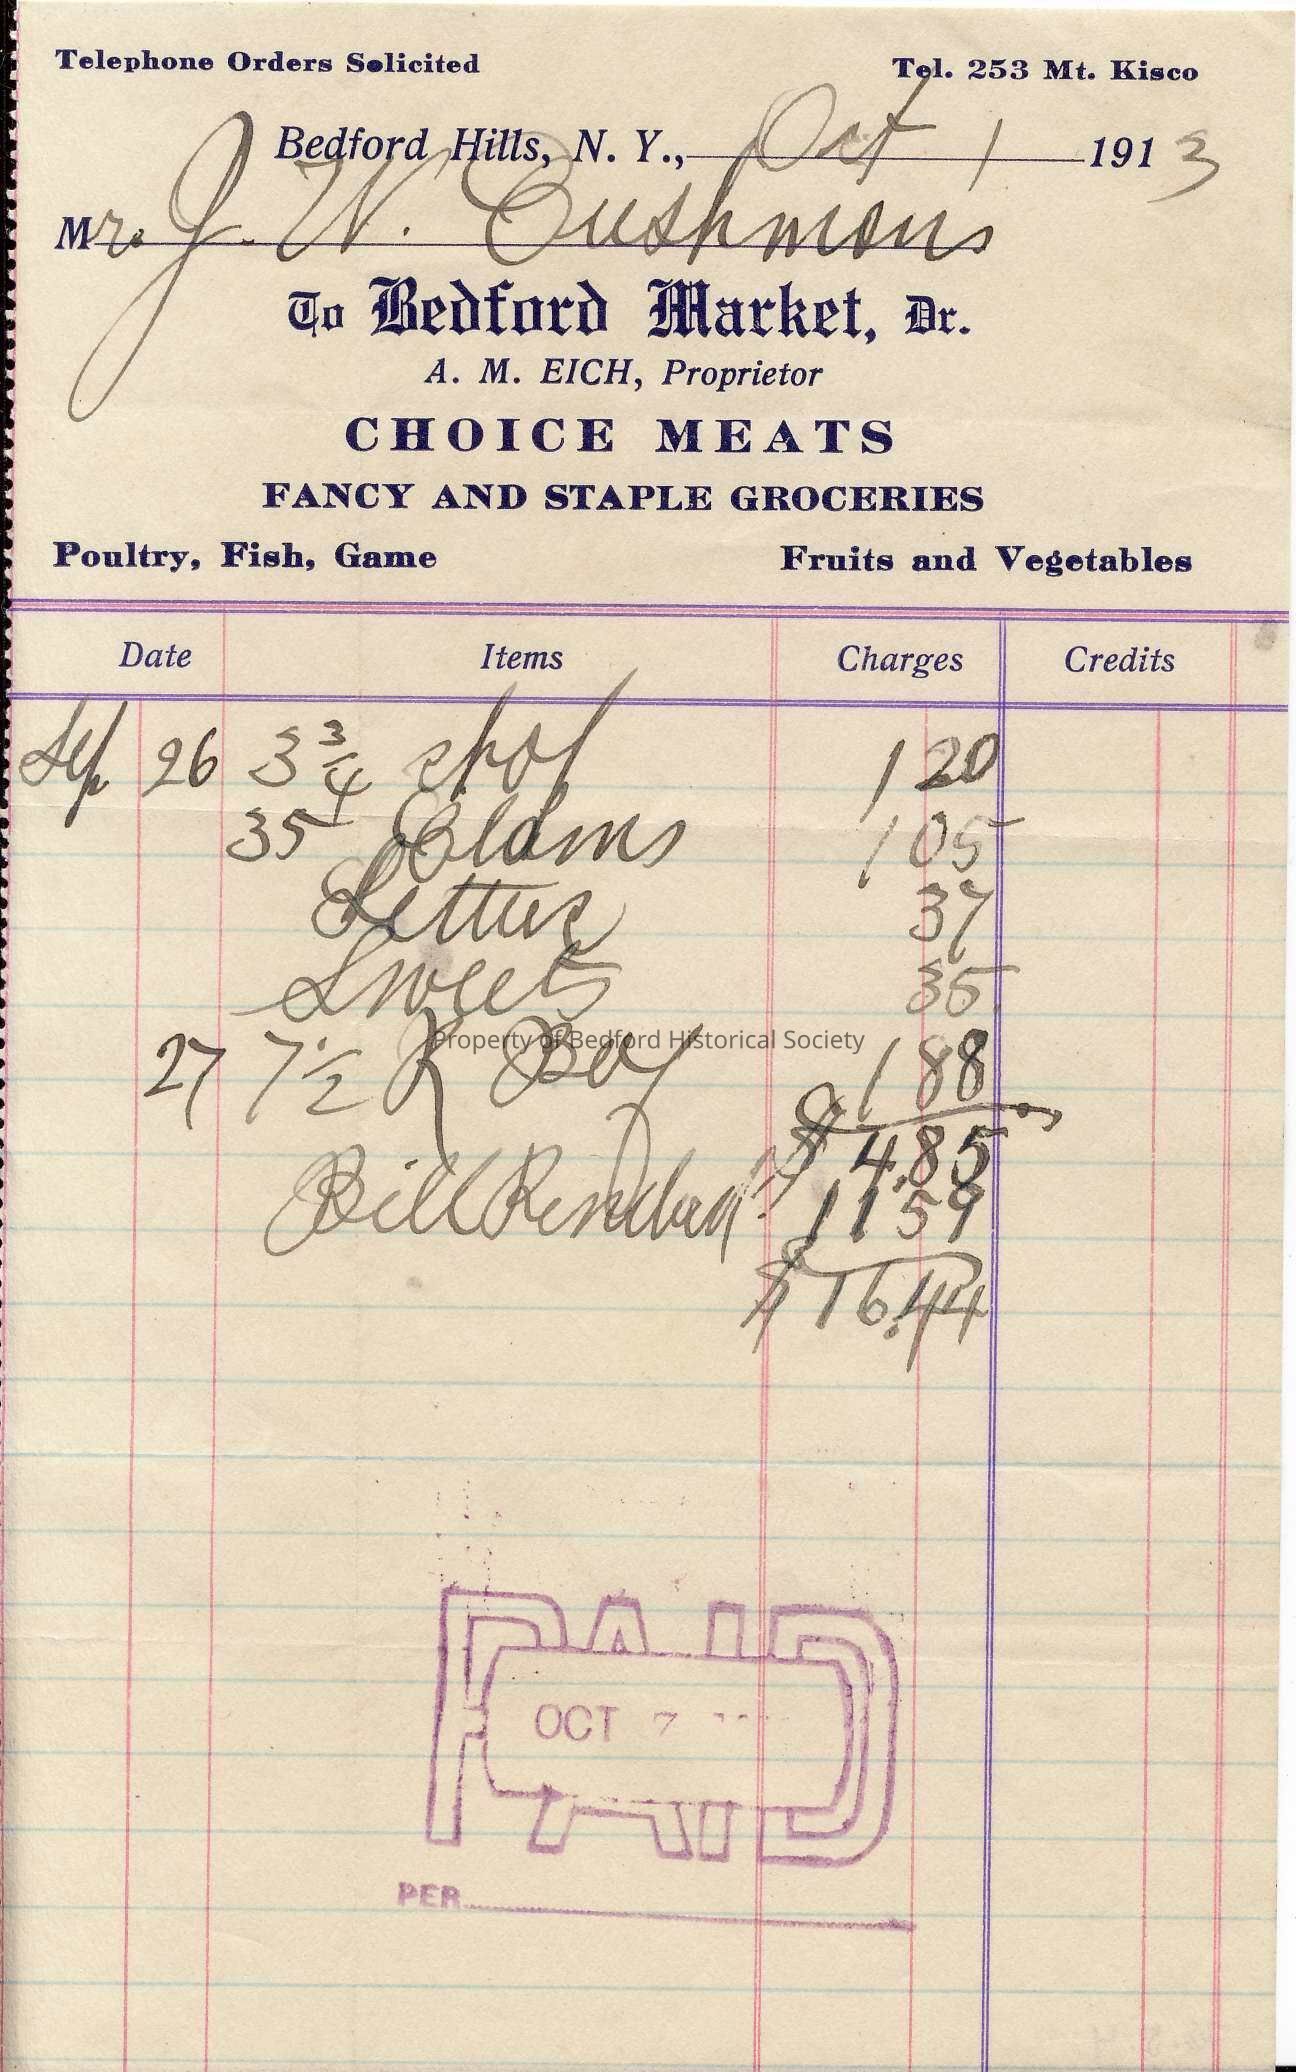 Telephone Orders Solicited Tel. 253 Mt. Kisco
Bedford Hills, N. Y., Oct 1 1913
Mr. J. W. Cushmans
To Bedford Market, Dr.
A. M. EICH, Proprietor
CHOICE MEATS
FANCY AND STAPLE GROCERIES
Poultry, Fish, Game Fruits and Vegetables
Date Items Charges Credits
Sep 26 3 3/4 chop 1 20
35 Clams 1 05
Lettus 37
Sweets 35
27 7 1/2 R Bef 1 88
Property of Bedford Historical Society
$ 4.85
Bill Rendered 11 59
$ 16.44
PAID
OCT 7
PER